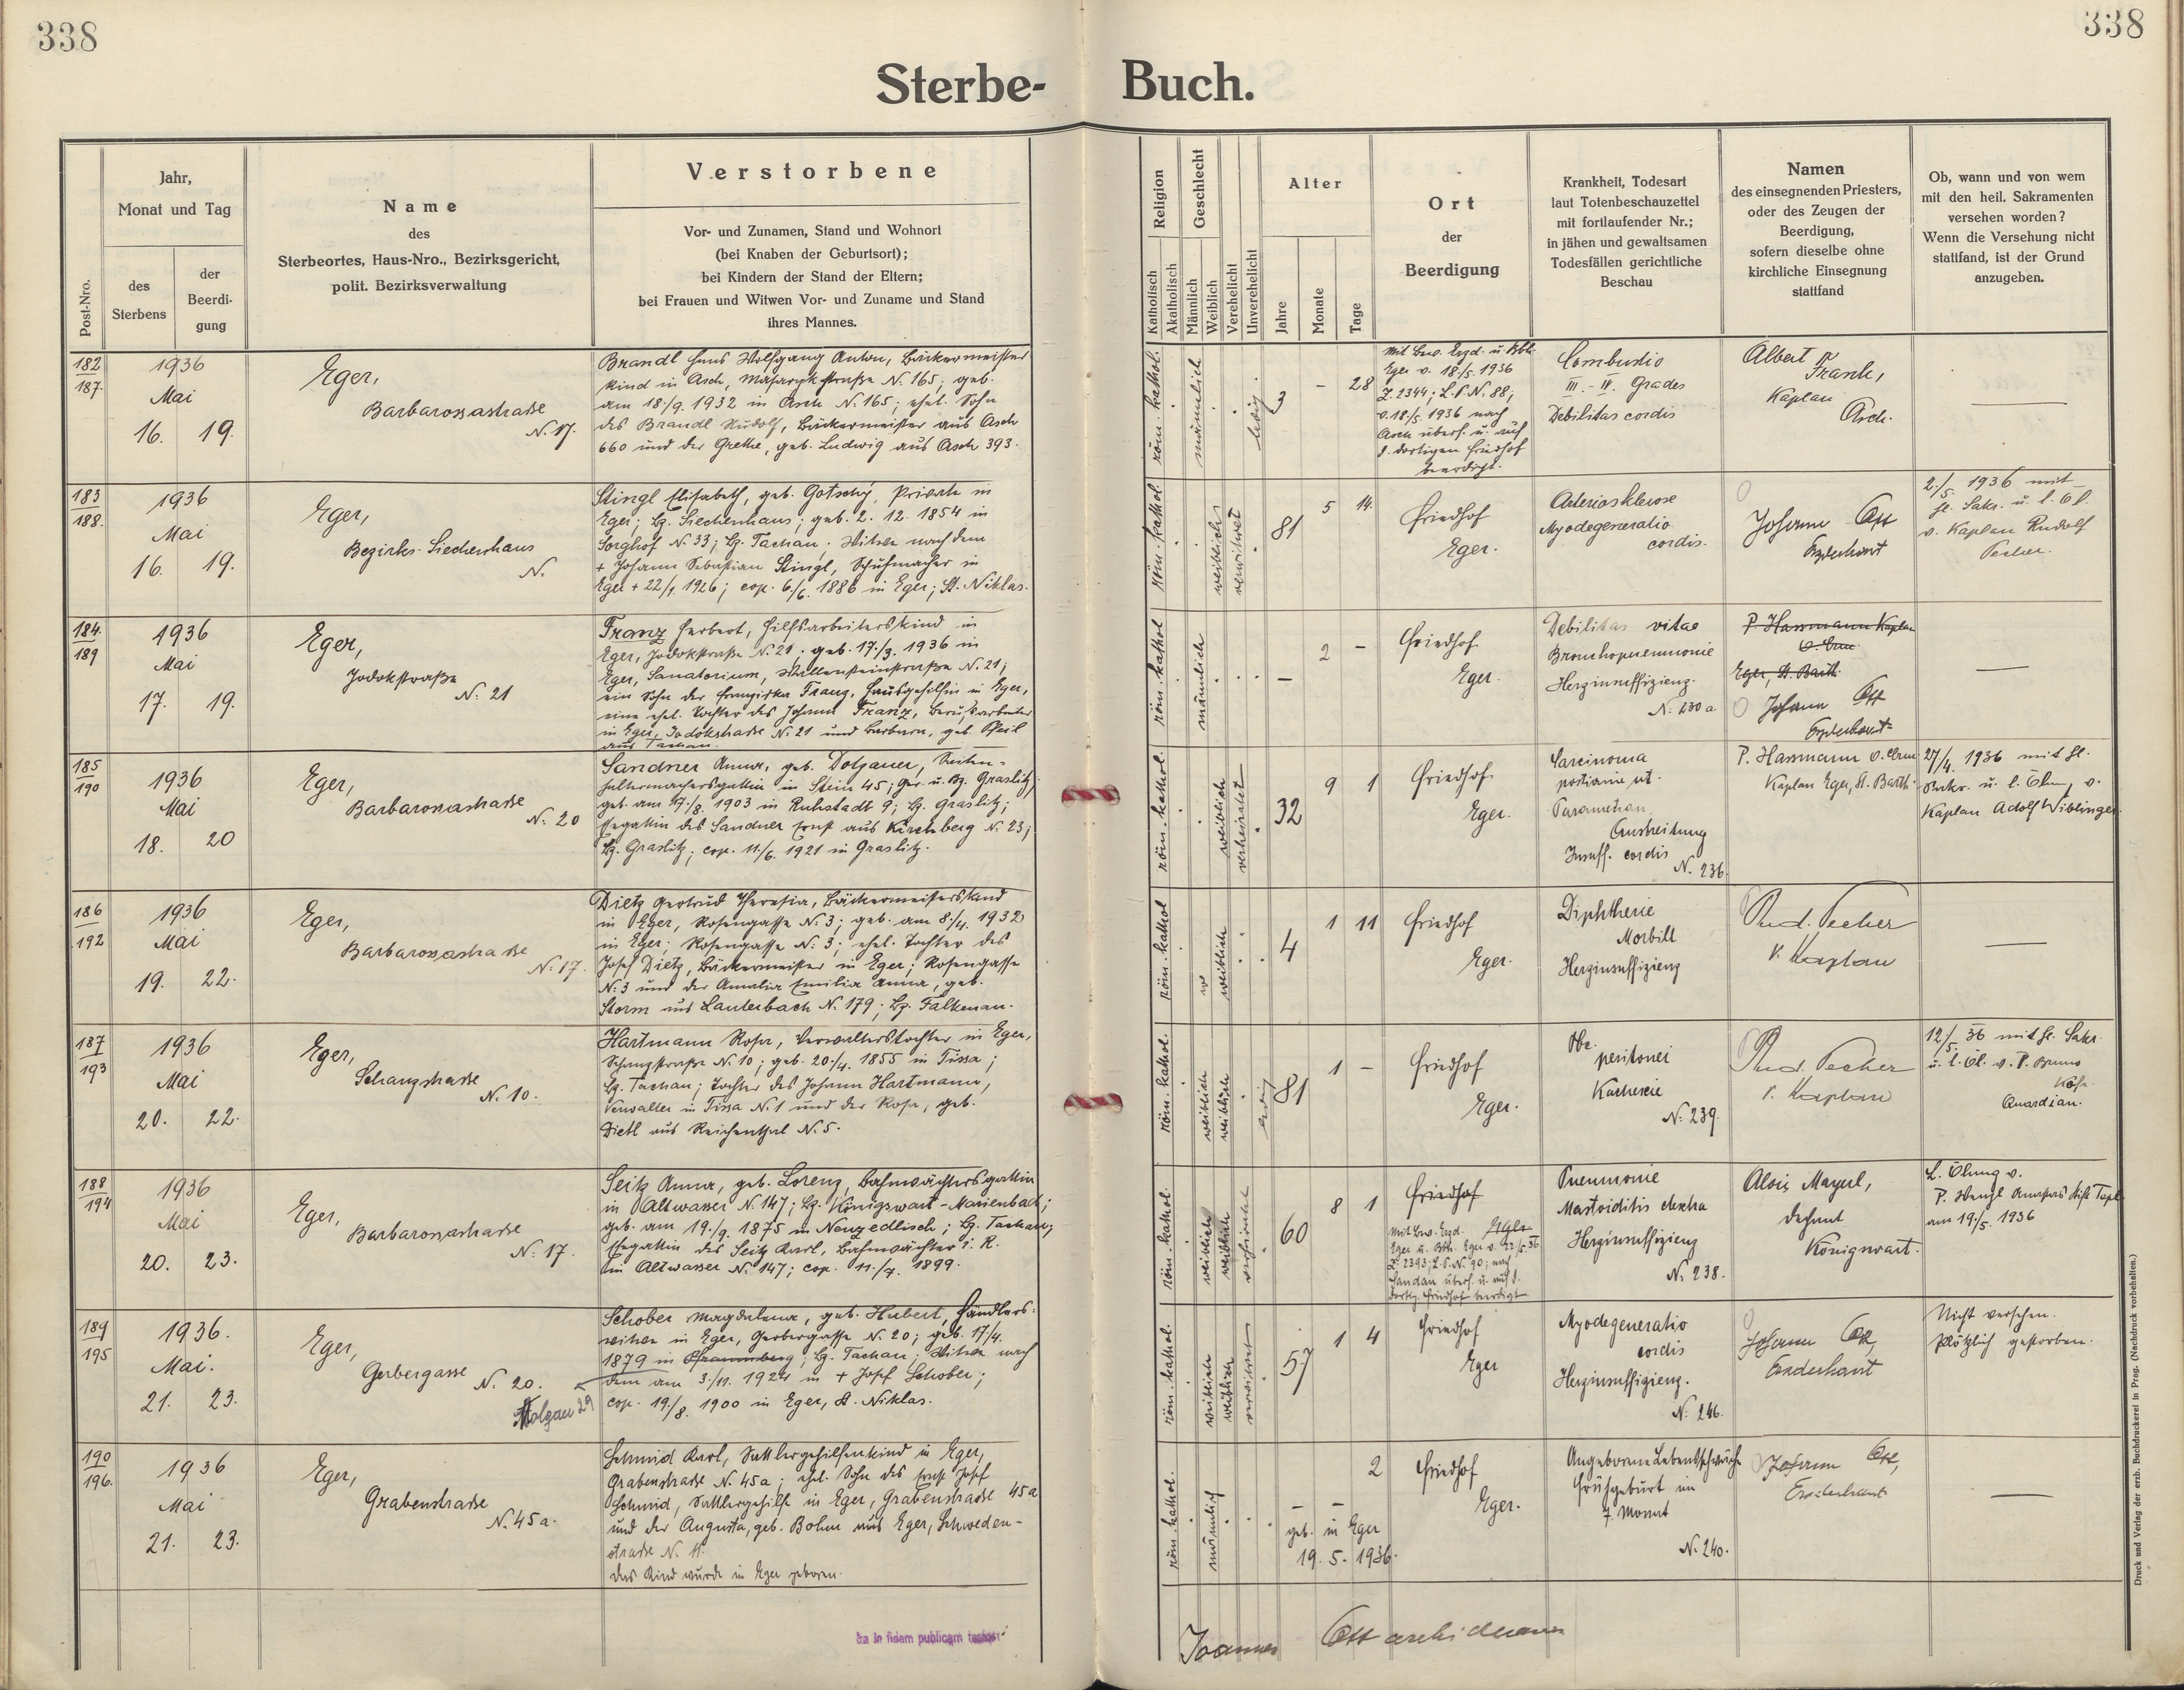 338
338
Sterbe- Buch.
Post-Nro.
Jahr,
Monat und Tag
des
Sterbens
der
Beerdi-
gung
Name
des
Sterbeortes, Haus-Nro., Bezirksgericht,
polit. Bezirksverwaltung
Verstorbene
Vor- und Zunamen, Stand und Wohnort
(bei Knaben der Geburtsort);
bei Kindern der Stand der Eltern;
bei Frauen und Witwen Vor- und Zuname und Stand
ihres Mannes.
Religion
Katholisch
Akatholisch
Geschlecht
Männlich
Weiblich
Verehelicht
Unverehelicht
Alter
Jahre
Monate
Tage
Ort
der
Beerdigung
Krankheit, Todesart
laut Totenbeschauzettel
mit fortlaufender Nr.;
in jähen und gewaltsamen
Todesfällen gerichtliche
Beschau
Namen
des einsegnenden Priesters,
oder des Zeugen der
Beerdigung,
sofern dieselbe ohne
kirchliche Einsegnung
stattfand
Ob, wann und von wem
mit den heil. Sakramenten
versehen worden?
Wenn die Versehung nicht
stattfand, ist der Grund
anzugeben.
182
187.
1936
Mai
16. 19.
Eger,
Barbarossastraße
N. 17.
Brandl Hans Wolfgang Anton, Bäckermeisters
kind in Asch, Masarykstraße N. 165; geb.
am 18./9. 1932 in Asch N. 165; ehel. Sohn
des Brandl Rudolf, Bäckermeister aus Asch
660 und der Grethe, geb. Ludwig aus Asch 393.
röm. kathol.
männlich
ledig
3 - 28
Mit Bew. Erzd. u. Bbh.
Eger v. 18/5. 1936
Z. 2344; L.P.N. 88;
v. 18/5. 1936 nach
Asch überf. u. auf
d. dortigen Friedhof
beerdigt.
Combustio
III. - IV. Grades
Debilitas cordis
Albert Frank,
Kaplan
Asch.
183
188.
1936
Mai
16. 19.
Eger,
Bezirks-Siechenhaus
N.
Stingl Elisabeth, geb. Gotschy, Private in
Eger; Bz. Siechenhaus; geb. 2. 12. 1854 in
Sorghof N. 33; Bz. Tachau. Witwe nach dem
+ Johann Sebastian Stingl, Schuhmacher in
Eger + 22/1. 1926; cop. 6./6. 1886 in Eger; St. Niklas.
röm. kathol.
weiblich
verwitwet
81 5 14.
Friedhof
Eger.
Arteriosklerose
Myodegeneratio
cordis.
Johann Ott
Erzdechant
2./5. 1936 mit
hl. Sakr. u. l. Öl.
v. Kaplan Rudolf
Pecher.
184.
189
1936
Mai
17. 19.
Eger,
Jodokstraße
N. 21
Franz Herbert, Hilfsarbeiterskind in
Eger, Jodokstraße N. 21. geb. 17./3. 1936 in
Eger, Sanatorium, Wallensteinstraße N. 21;
ein Sohn der Franziska Franz, Hausgehilfin in Eger,
eine ehel. Tochter des Johann Franz,
in Eger, Jodokstraße N. 21 und Barbara, geb. Pfeil
aus Tachau.
röm. kathol
männlich
- 2 -
Friedhof
Eger.
Debilitas vitae
Bronchopneumonie
Herzinsuffizienz.
N. 230 a
P. Hassmann Kaplan
Eger, St. Barth.
Johann Ott
Erzdechant
185
190
1936
Mai
18. 20
Eger,
Barbarossastraße
N. 20
Sandner Anna, geb. Dotzauer, Saiten-
haltermachersgattin in Stein 45; Ger. u. Bz. Graslitz;
geb. am 17./8. 1903 in Ruhstadt 9; Bz. Graslitz;
Ehegattin des Sandner Ernst aus Kirchberg N. 23;
Bz. Graslitz; cop. 11./6. 1921 in Graslitz.
röm. kathol.
weiblich
verheiratet
32 9 1
Friedhof
Eger.
Carcinoma
portionis ut.
Parametran
Ausbreitung
Insuff. cordis
N. 236.
P. Hassmann
Kaplan Eger, St. Barth.
27/4. 1936 mit hl.
Sakr. u. l. Ölung v.
Kaplan Adolf Wiblinger.
186
192
1936
Mai
19. 22.
Eger,
Barbarossastraße
N. 17.
Dietz Gertrud Theresia, Bäckermeisterskind
in Eger, Rosengasse N. 3; geb. am 8./4. 1932
in Eger; Rosengasse N. 3; ehel. Tochter des
Josef Dietz, Bäckermeister in Eger; Rosengasse
N. 3 und der Amalia Emilia Anna, geb.
Storm aus Lauterbach N. 179; Bz. Falkenau.
röm. kathol
weiblich
4 1 11
Friedhof
Eger.
Diphtherie
Morbill
Herzinsuffizienz
Rud. Pecher
Kaplan
187
193
1936
Mai
20. 22.
Eger,
Schanzstraße
N. 10.
Hartmann Rosa, Verwalterstochter in Eger,
Schanzstraße N. 10; geb. 20./4. 1855 in Tissa;
Bz. Tachau; Tochter des Johann Hartmann,
Verwalter in Tissa N. 1 und der Rosa, geb.
Dietl aus Reichenthal N. 5.
röm. kathol.
weiblich
weiblich
ledig
81 1 -
Friedhof
Eger.
peritonei
Kachexie
N. 239.
Rud. Pecher
Kaplan
12./5. 36 mit hl. Sakr.
u. l. Öl. v. P. Bruno
Quardian.
188
194
1936
Mai
20. 23.
Eger,
Barbarossastraße
N. 17.
Seitz Anna, geb. Lorenz, Bahnwächtersgattin
in Altwasser N. 147; Bz. Königswart-Marienbad;
geb. am 19./9. 1875 in Neuzedlisch; Bz. Tachau;
Ehegattin des Seitz Karl, Bahnwächter i. R.
in Altwasser N. 147; cop. 11./7. 1899.
röm. kathol.
weiblich
weiblich
verheiratet
60 8 1
Friedhof
Eger
Mit Bew. Erzd.
Eger u. Bbh. Eger v. 22/5. 36
Z. 2393; L.P.N. 90; nach
Sandau überf. u. auf d.
dortig. Friedhof beerdigt
Pneumonie
Mastoiditis dextra
Herzinsuffizienz
N. 238.
Alois Mayerl,
Dechant
Königswart.
L. Ölung v.
P. Hengl Stift Tepl
am 19/5. 1936
189
195
1936.
Mai.
21. 23.
Eger,
Gerbergasse
N. 20.
Schober Magdalena, geb. Hubert, Händlers-
witwe in Eger, Gerbergasse N. 20; geb. 17/4.
1879 in Pfraumberg; Bz. Tachau; Witwe nach
dem am 3./11. 1924 in + Josef Schober;
cop. 19./8. 1900 in Eger, St. Niklas.
röm. kathol.
weiblich
weiblich
verwitwet
57 1 4
Friedhof
Eger
Myodegeneratio
cordis
Herzinsuffizienz.
N. 246.
Johann Ott,
Erzdechant
Nicht versehen.
Plötzlich gestorben.
190
196.
1936
Mai
21. 23.
Eger,
Grabenstraße
N. 45a.
Schmid Karl, Sattlergehilfenkind in Eger,
Grabenstraße N. 45a; ehel. Sohn des Ernst Josef
Schmid, Sattlergehilfe in Eger, Grabenstraße 45a
und der Augusta, geb. Böhm aus Eger, Schweden-
straße N. 11.
Das Kind wurde in Eger geboren.
röm. kathol.
männlich
- - 2
geb. in Eger
19. 5. 1936.
Friedhof
Eger.
Angeborne Lebensschwäche
Frühgeburt im
7. Monat
N. 240.
Johann Ott,
Erzdechant
ita in fidem publicam testor
Joannes Ott archidecanus
Druck und Verlag der erzb. Buchdruckerei in Prag. (Nachdruck vorbehalten.)